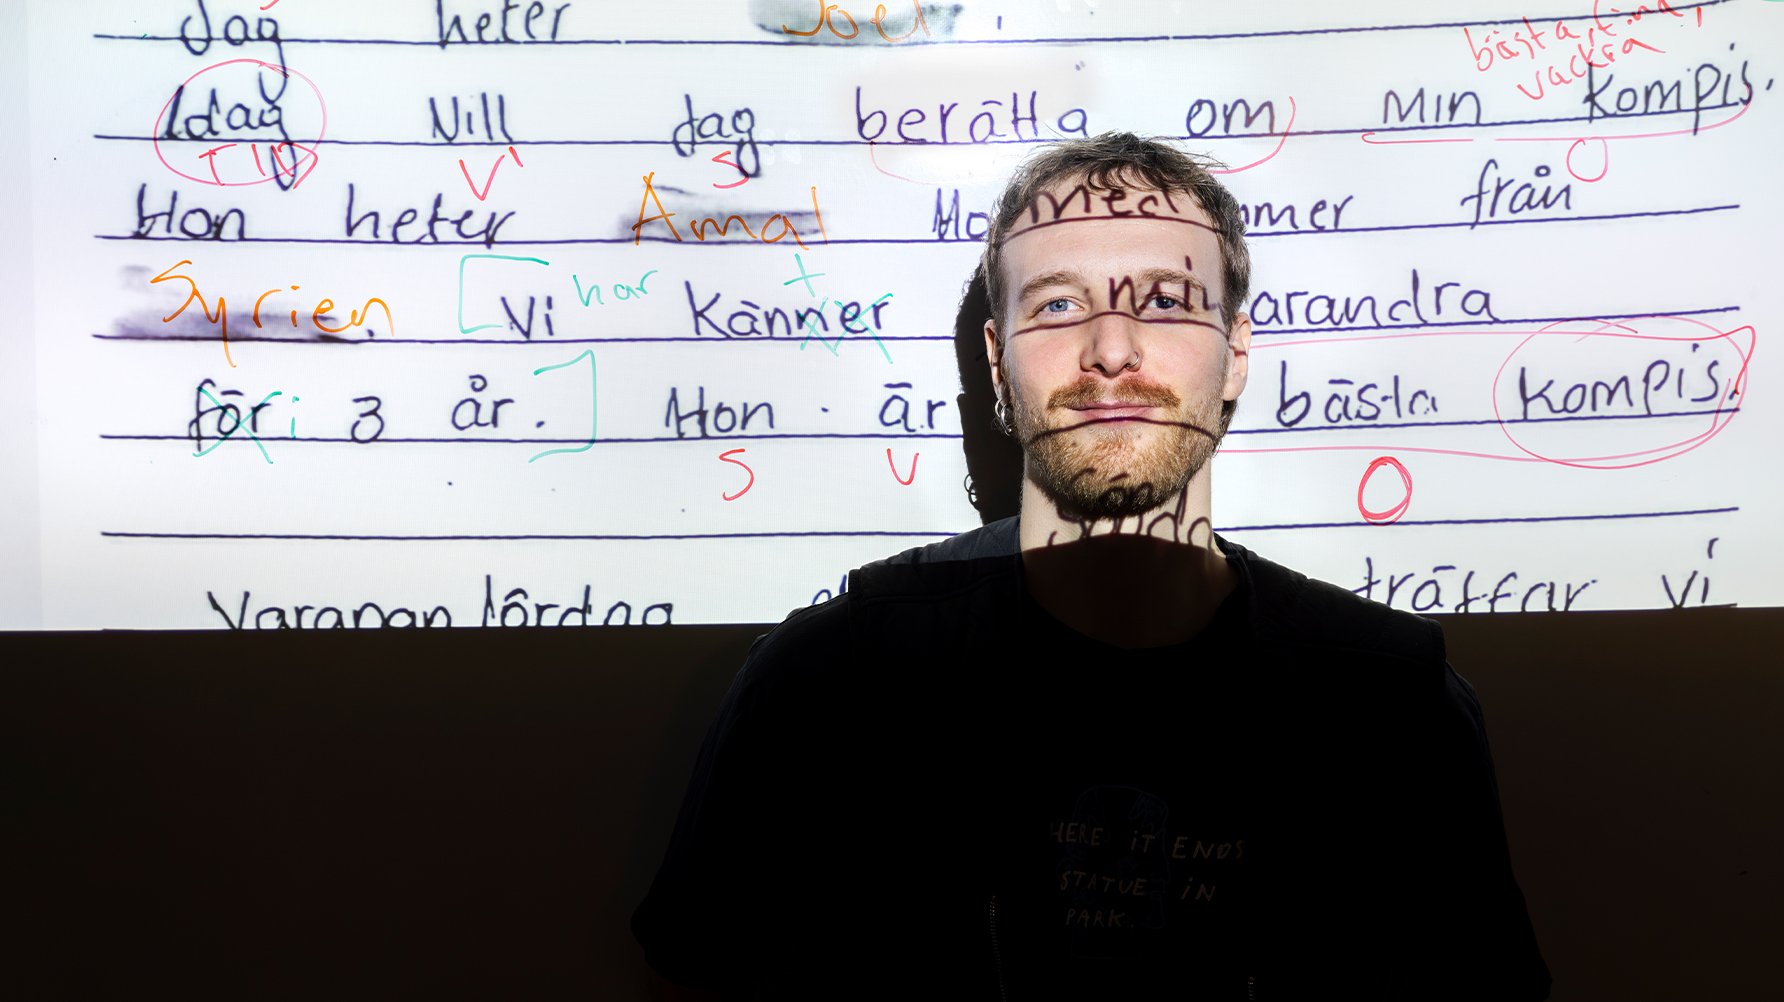 Jag heter Joel.
bästa, fina,
vackra
Idag vill jag berätta om min kompis.
TID V S O
Hon heter Amal Ho mmer från
Syrien. Vi har känner t varandra
för i 3 år. Hon är bästa kompis.
S V O
Varannan lördag träffar vi
HERE iT ENDS
STATUE iN
PARK.